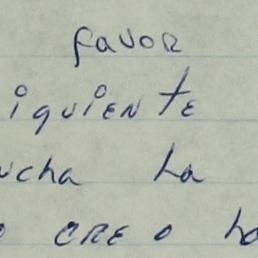 favor
iguiente
ucha La
o CREO ha